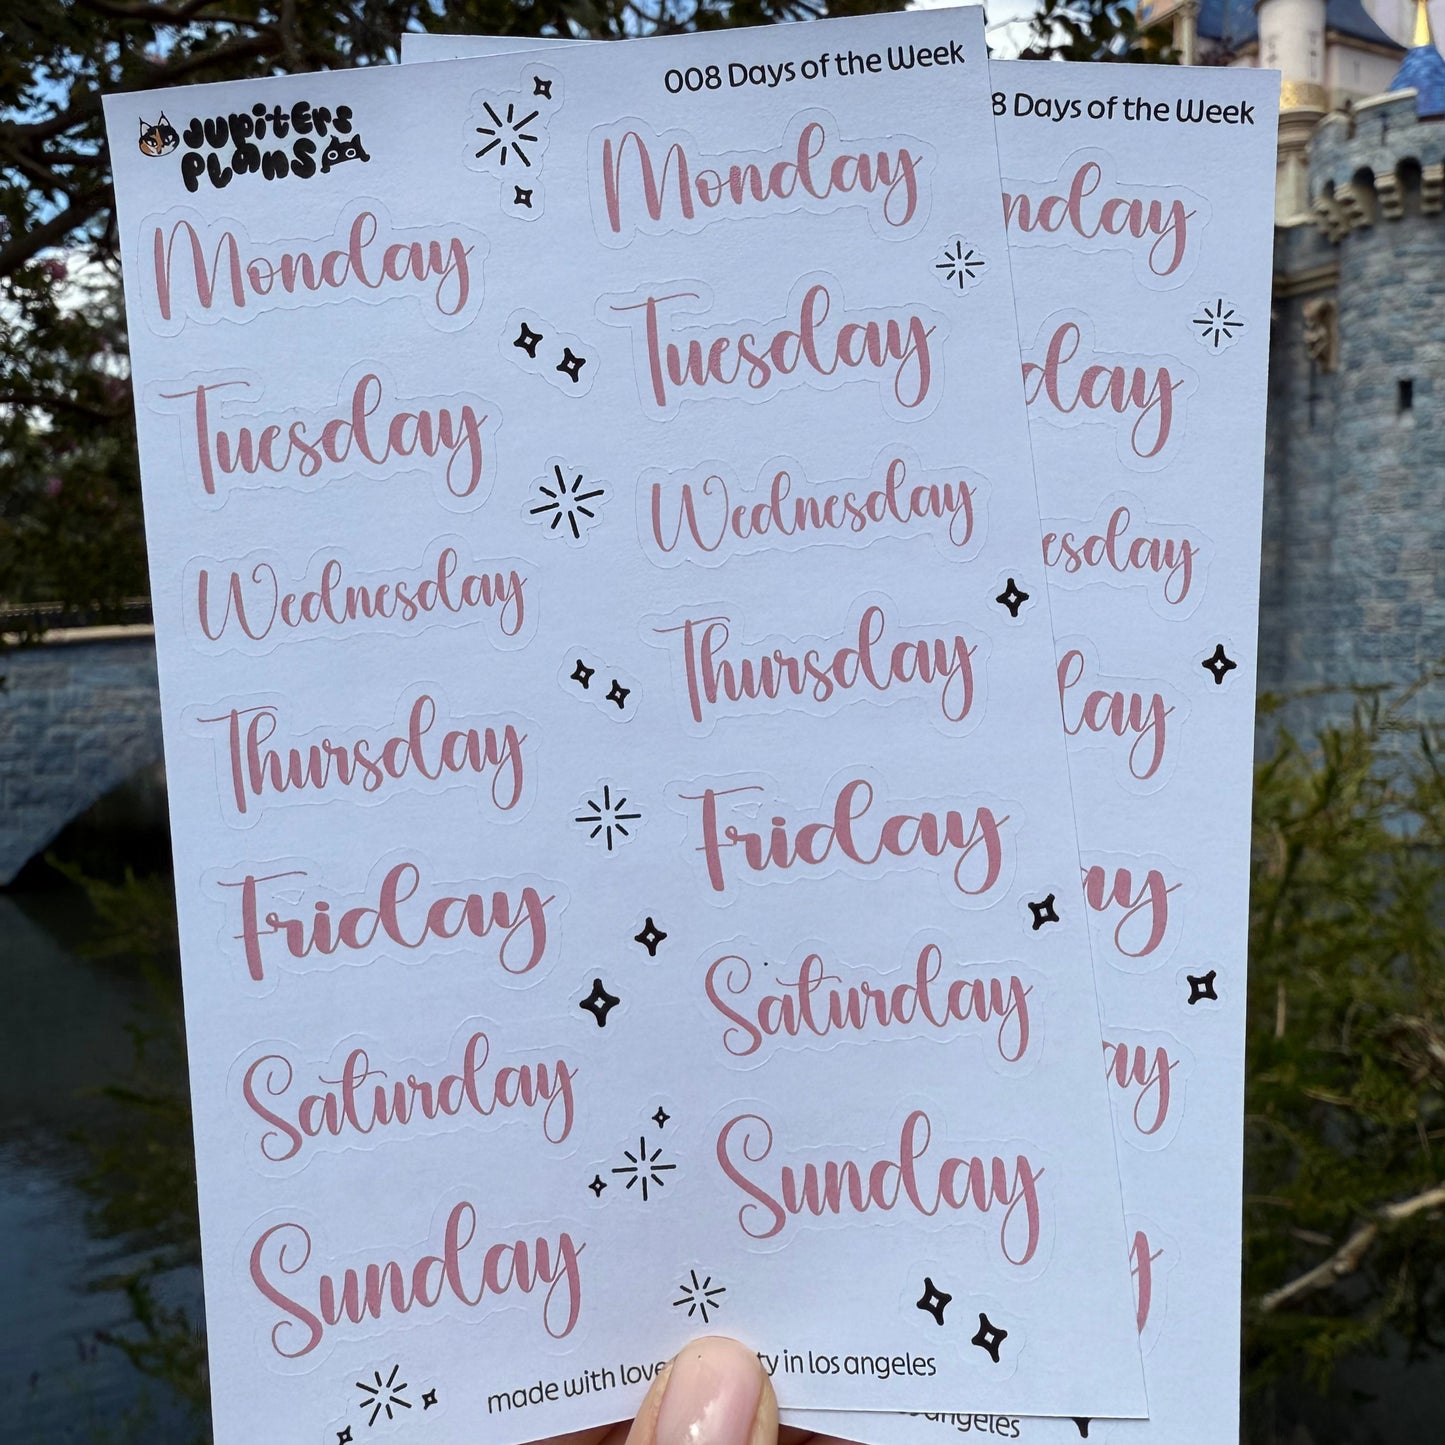 Jupiters
Plans
008 Days of the Week
8 Days of the Week
Monday
Tuesday
Wednesday
Thursday
Friday
Saturday
Sunday
Monday
Tuesday
Wednesday
Thursday
Friday
Saturday
Sunday
nday
day
esday
day
ay
ay
y
made with love ty in los angeles
angeles